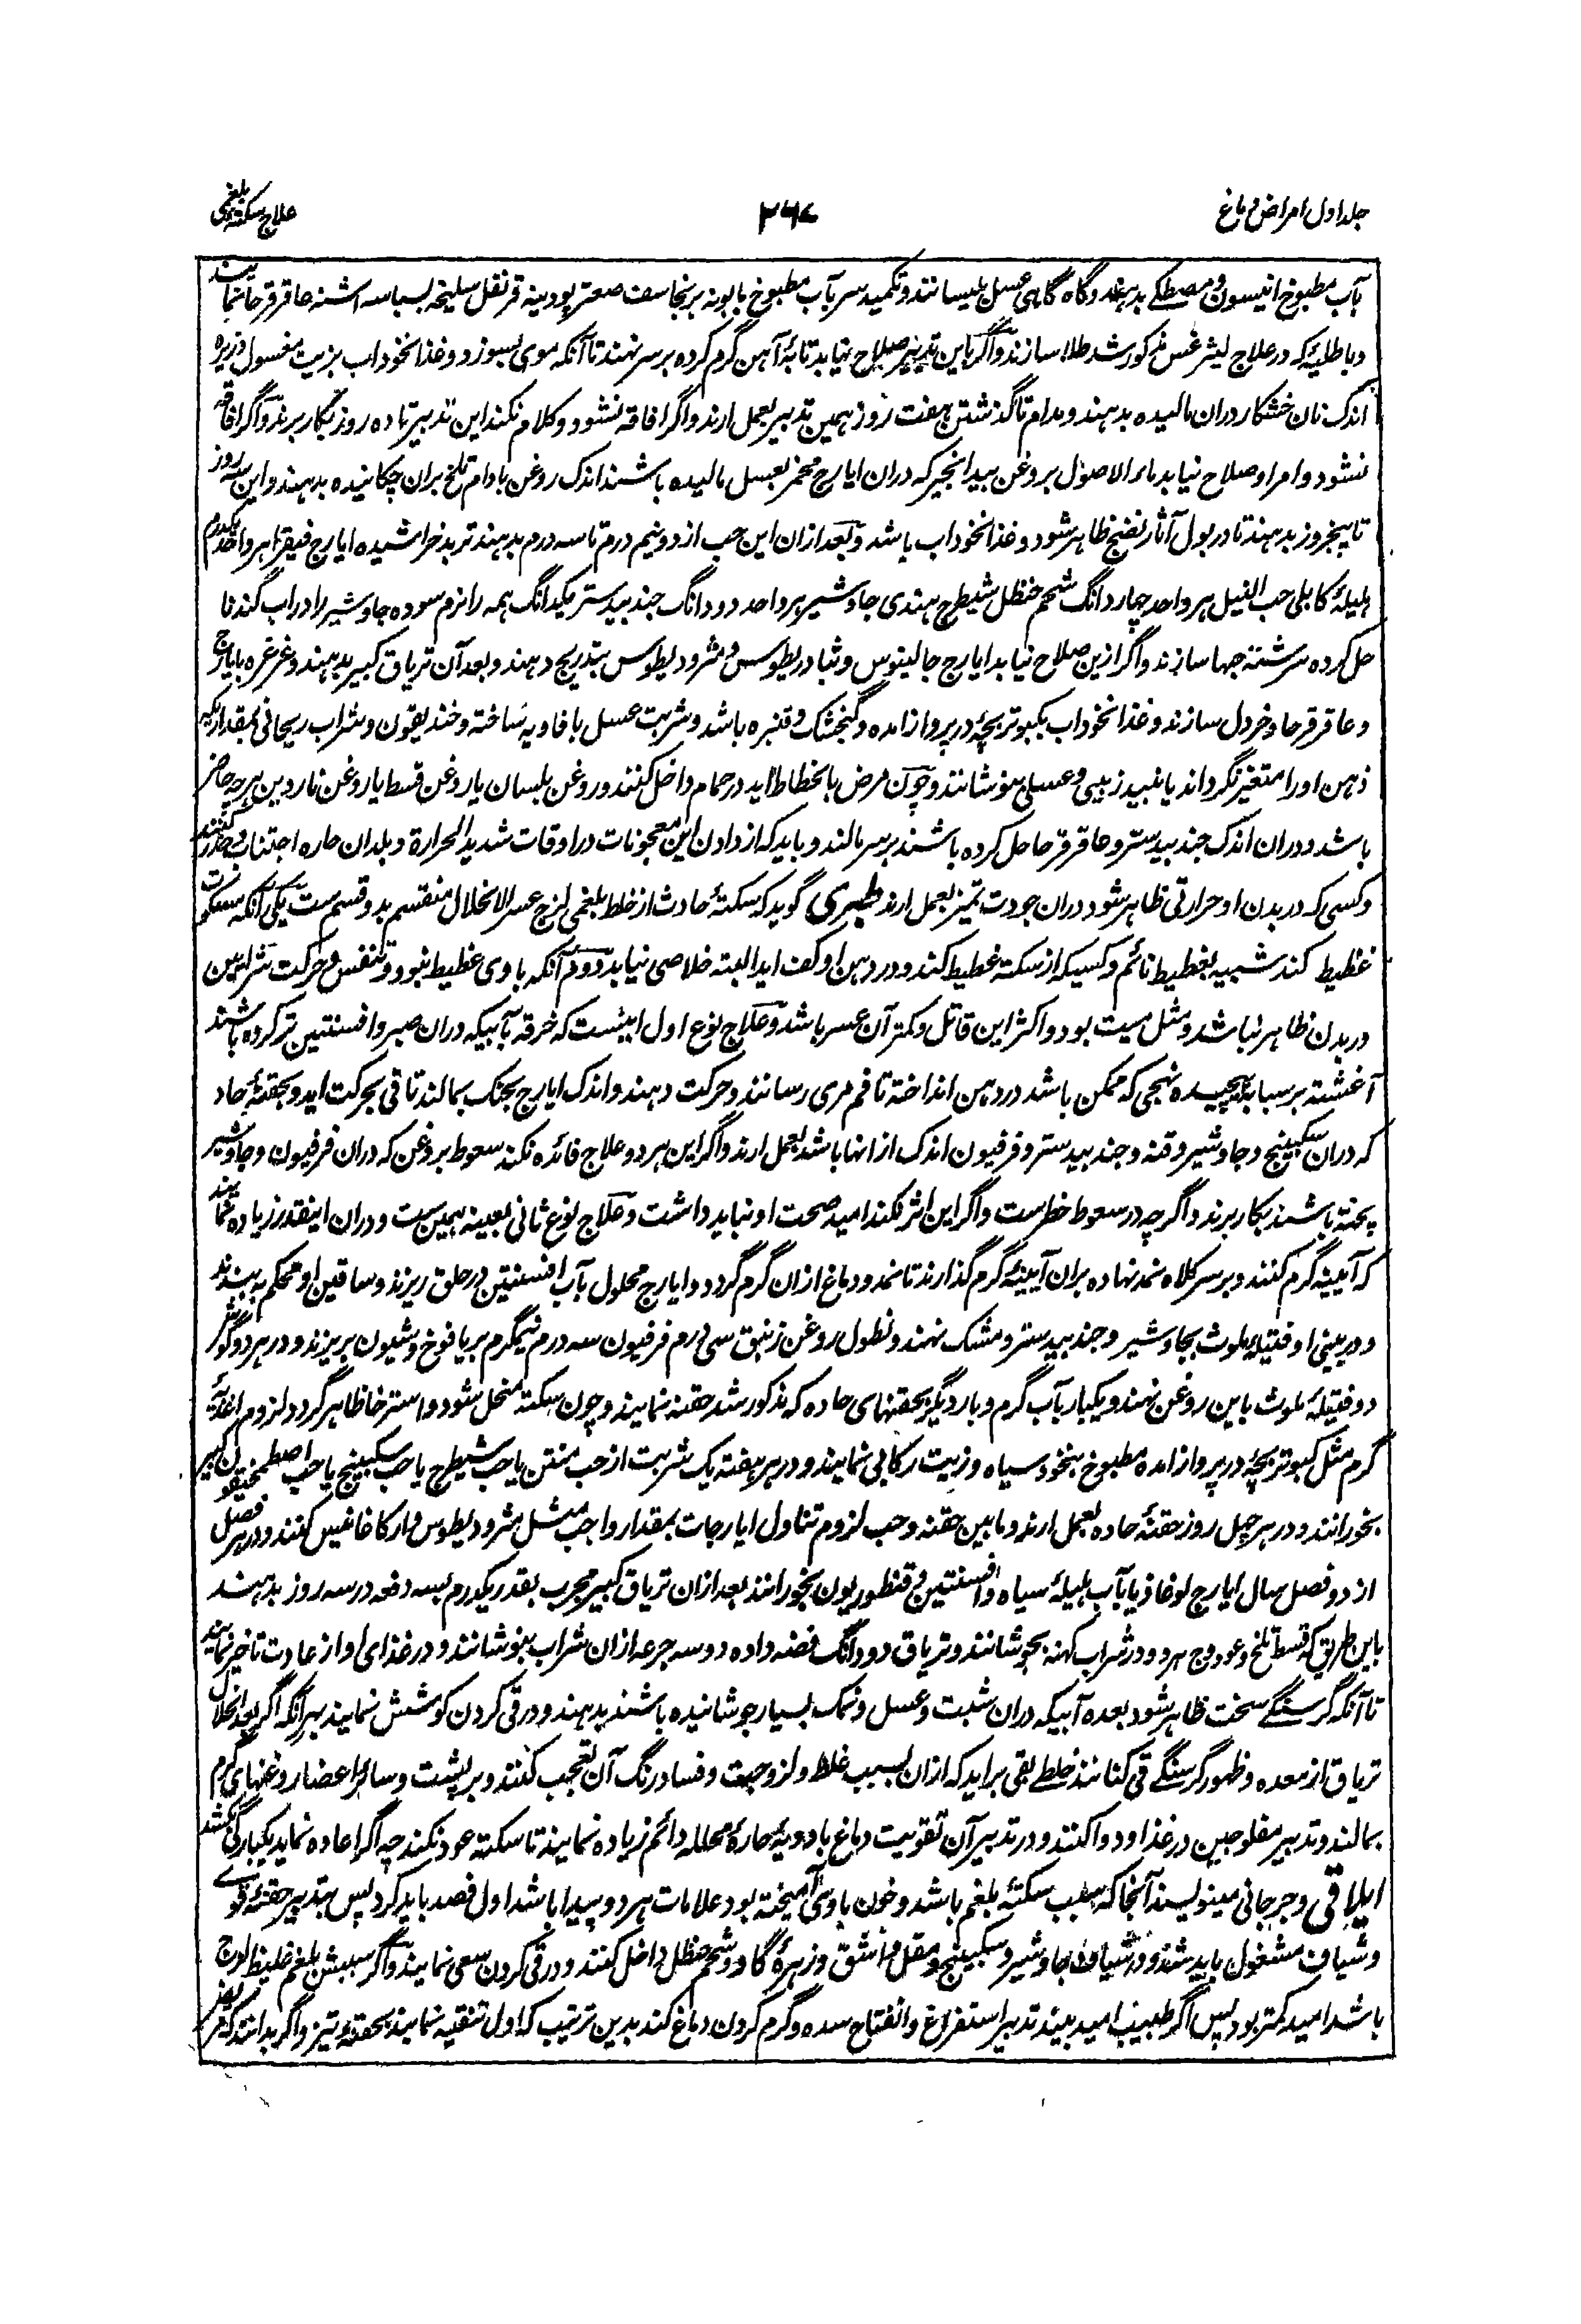 جلد اول امراض دماغ
۲۶۷
علاج سکتهٔ بلغمی
بآب مطبوخ انیسون و مصطکے بدهند و گاه گاهی عسل بلیسانند و تکمید سر بآب مطبوخ بابونه برنجاسف صعتر پودینه قرنفل سلیخه بسباسه اشنه عاقرقرحا نمایند
و باطلیهٔ که در علاج لیثرغس مذکور شد طلا سازند و اگر باین تدبیر صلاح نیابد تابهٔ آهن گرم کرده بر سر نهند تا آنکه موی بسوزد و غذا نخوداب بزیت مغسول و زیره
اندک نان خشکار دران مالیده بدهند و مدام تا گذشتن هفت روز همین تدبیر بعمل ارند و اگر افاقه نشود و کلام نکند این تدبیر تا ده روز بکار برند و اگر افاقه
نشود و امر او صلاح نیابد ماء الاصول بروغن بیدانجیر که دران ایارج مخمر بعسل مالیده باشند اندک روغن بادام تلخ بران چکانیده بدهند و این سه روز
تا پنجروز بدهند تا در بول آثار نضج ظاهر شود و غذا نخوداب باشد و بعد ازان این حب از دو نیم درم تا سه درم بدهند تربد خراشیده ایارج فیقرا هر واحد یکدرم
هلیلهٔ کابلی حب النیل هر واحد چهار دانگ شحم حنظل شیطرج هندی جاوشیر هر واحد دو دانگ جندبیدستر یکدانگ همه را نرم سوده جاوشیر را در اب گندنا
حل کرده سرشته حبها سازند و اگر ازین صلاح نیابد ایارج جالینوس و ثبادریطوس و مثرودیطوس بتدریج دهند و بعد آن تریاق کبیر بدهند و غرغره بایارج
و عاقرقرحا و خردل سازند و غذا نخوداب بکبوتر بچهٔ در پرواز امده و گنجشک و قنبره باشد و شربت عسل بافاویه ساخته و خندیقون و شراب ریحانی بمقداریکه
ذهن او را متغیر نگرداند یا نبیذ زبیبی و عسلی بنوشانند و چون مرض بانحطاط اید در حمام داخل کنند و روغن بلسان یا روغن قسط یا روغن ناردین هر چه حاضر
باشد و دران اندک جندبیدستر و عاقرقرحا حل کرده باشند بر سر مالند و باید که از دادن این معجونات در اوقات شدید الحرارة و بلدان حاره اجتناب و حذر کنند
و کسی که در بدن او حرارتی ظاهر شود دران جودت تمیز بعمل ارند طبری گوید که سکتهٔ حادث از خلط بلغمی لزج عسر الانحلال منقسم بدو قسم ست یکی آنکه مسکوت
غطیط کند شبیه بغطیط نائم و کسیکه از سکته غطیط کند و در دهن او کف اید البته خلاصی نیابد دوم آنکه با وی غطیط نبود و تنفس و حرکت شرایین
در بدن ظاهر نباشد و مثل میت بود و اکثر این قاتل و کمتر آن عسر باشد و علاج نوع اول اینست که خرقه بآبیکه دران صبر و افسنتین تر کرده باشند
آغشته بر سبابه پیچیده نهجی که ممکن باشد در دهن انداخته تا فم مری رسانند و حرکت دهند و اندک ایارج بحنک بمالند تا قی بحرکت اید و بحقنهٔ حاد
که دران سکبینج و جاوشیر و قنه و جندبیدستر و فرفیون اندک ازانها باشد بعمل ارند و اگر این هر دو علاج فائده نکند سعوط بروغن که دران فرفیون و جاوشیر
پخته باشند بکار برند و اگرچه در سعوط خطرست و اگر این اثر نکند امید صحت او نباید داشت و علاج نوع ثانی بعینه همین ست و دران اینقدر زیاده نمایند
که آیینه گرم کنند و بر سر کلاه نمد نهاده بران آیینهٔ گرم گذارند تا نمد و دماغ ازان گرم گردد و ایارج محلول بآب افسنتین در حلق ریزند و ساقین او محکم به بندند
و در بینی او فتیله ملوث بجاوشیر و جندبیدستر و مشک نهند و نطول روغن زنبق سی درم فرفیون سه درم نیمگرم بر یافوخ و شیون بریزند و در هر دو گوش
دو فتیلهٔ ملوث باین روغن نهند و یکبار بآب گرم و بار دیگر بحقنهای حاده که مذکور شد حقنه نمایند و چون سکته منحل شود و استرخا ظاهر گردد لزوم اغذیهٔ
گرم مثل کبوتر بچهٔ در پرواز امده مطبوخ بنخود سیاه و زیت رکابی نمایند و در هر هفته یک شربت از حب منتن یا حب شیطرج یا حب سکبینج یا حب اصطمخیقون کبیر
بخورانند و در هر چهل روز حقنهٔ حاده بعمل ارند و مابین حقنه و حب لزوم تناول ایارجات بمقدار واجب مثل مثرودیطوس و ارکاغانیس کنند و در هر فصل
از دو فصل سال ایارج لوغاذیا بآب هلیلهٔ سیاه و افسنتین و قنطوریون بخورانند بعد ازان تریاق کبیر مجرب بقدر یکدرم بسه دفعه در سه روز بدهند
باین طریق که قسط تلخ و عود وج هر دو در شراب کهنه بجوشانند و تریاق دو دانگ فضه داده دو سه جرعه ازان شراب بنوشانند و در غذای او از عادت تاخیر نمایند
تا آنکه گرسنگے سخت ظاهر شود بعده آبیکه دران شبت و عسل و نمک بسیار جوشانیده باشند بدهند و در قی کردن کوشش نمایند بهر آنکه اگر بعد انحلال
تریاق از معده و ظهور گرسنگے قی کنانند خلطے بقی براید که ازان بسبب غلظ و لزوجت و فساد رنگ آن تعجب کنند و بر پشت و سائر اعضا روغنهای گرم
بمالند و تدبیر مفلوجین در غذا و دوا کنند و در تدبیر آن تقویت دماغ بادویهٔ حارهٔ محلله دائم زیاده نمایند تا سکته عود نکند چه اگر اعاده نماید یکبارگی بکشد
ایلاقی و جرجانی مینویسند آنجا که سبب سکتهٔ بلغم باشد و خون با وی آمیخته بود علامات هر دو پیدا باشد اول فصد باید کرد پس بتدبیر حقنهٔ قوے
و شیاف مشغول باید شد و در شیاف جاوشیر و سکبینج و مقل و اشق و زهرهٔ گاو و شحم حنظل داخل کنند و در قی کردن سعی نمایند و اگر سببش بلغم غلیظ لزج
باشد امید کمتر بود پس اگر طبیب امید بیند تدبیر استفراغ و انفتاح سده و گرم کردن دماغ کند بدین ترتیب که اول تنقیه نمایند بحقنهٔ تیز و اگر بدانند که